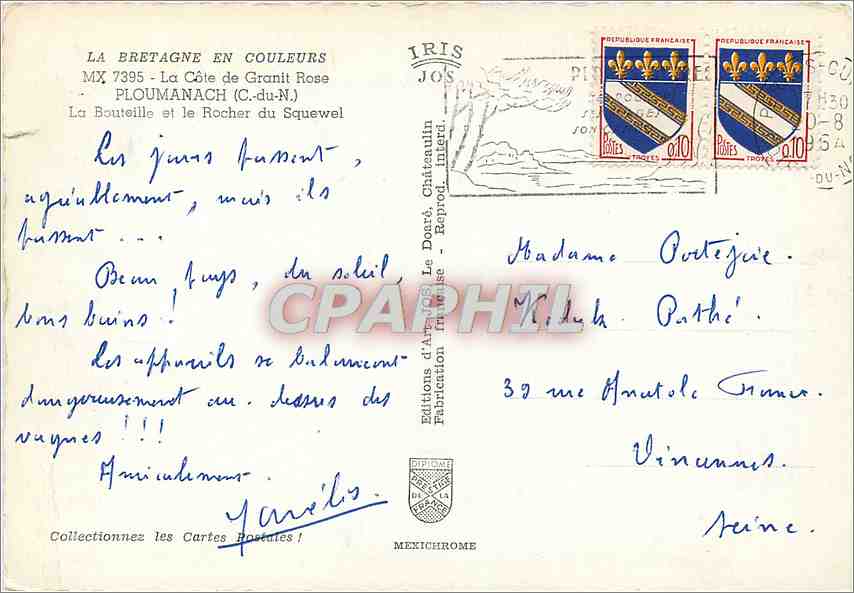 LA BRETAGNE EN COULEURS
MX 7395 - La Côte de Granit Rose
PLOUMANACH (C.-du-N.)
La Bouteille et le Rocher du Squewel
IRIS
JOS
Les jours passent,
agréablement, mais ils
passent...
Beau pays, du soleil,
bons bains!
Les appareils se balancent
dangereusement au-dessus des
vagues!!!
Amicalement.
Collectionnez les Cartes Postales !
Editions d'Art JOS Le Doaré, Châteaulin
Fabrication française - Reprod. interd.
DIPLOME
PRESTIGE
DE LA
FRANCE
MEXICHROME
REPUBLIQUE FRANÇAISE
POSTES
0,10
TROYES
REPUBLIQUE FRANÇAISE
POSTES
0,10
TROYES
Madame
Kodak. Pathé.
39 rue Anatole France.
Vincennes.
Seine.
CPAPHIL